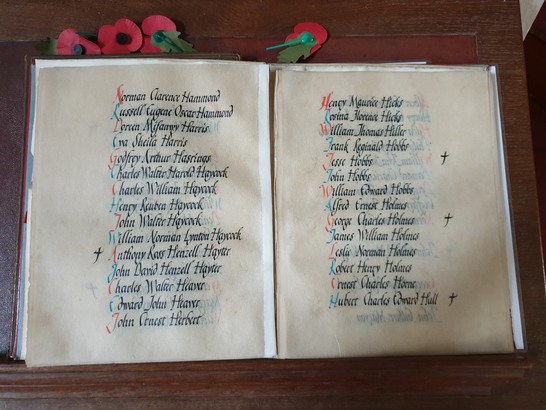 Norman Clarence Hammond
Russell Eugene Oscar Hammond
Doreen Mifanwy Harris
Eva Sheila Harris
Godfrey Arthur Hastings
Charles Walter Harold Haycock
Charles William Haycock
Henry Reuben Haycock
John Walter Haycock
William Norman Lynton Haycock
Anthony Ross Henzell Hayter
John David Henzell Hayter
Charles Walter Heaver
Edward John Heaver
John Ernest Herbert
Henry Maurice Hicks
Rosina Florence Hicks
William Thomas Hiller
Frank Reginald Hobbs
Jesse Hobbs
John Hobbs
William Edward Hobbs
Alfred Ernest Holmes
George Charles Holmes
James William Holmes
Leslie Norman Holmes
Robert Henry Holmes
Ernest Charles Horne
Hubert Charles Edward Hull